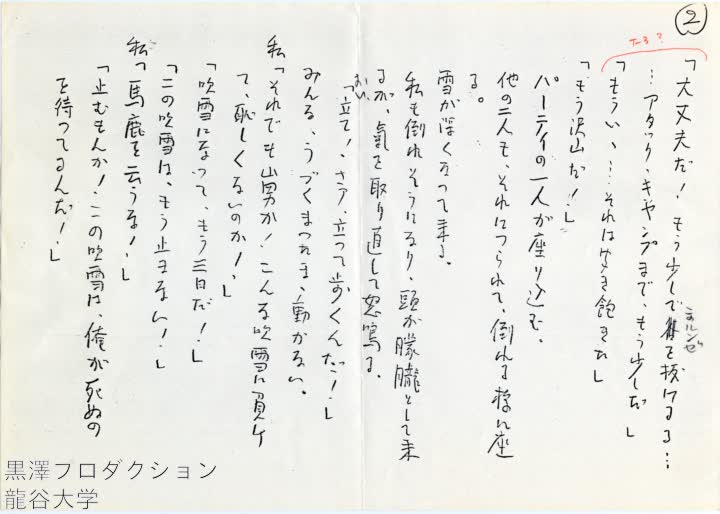 ②
T-3?
「大丈夫だ！もう少しで
ゴルンゼ
を抜ける…
…アタック・キャンプまで、もう少しだ」
「もういゝ…それは聞き飽きた」
「もう沢山だ！」
パーティの一人が座り込む。
他の二人も、それにつられて、倒れる様に座
る。
雪が深くなって来る。
私も倒れそうになり、頭が朦朧として来
るが、氣を取り直して怒鳴る。
おい、
「立て！、さア、立って歩くんだ！」
みんな、うづくまったまゝ動かない。
私「それでも山男か！こんな吹雪に負け
て、恥しくないのか！」
「吹雪になって、もう三日だ！」
「この吹雪は、もう止まない！」
私「馬鹿を云うな！」
「止むもんか！この吹雪は、俺が死ぬの
を待ってるんだ！」
黒澤プロダクション
龍谷大学